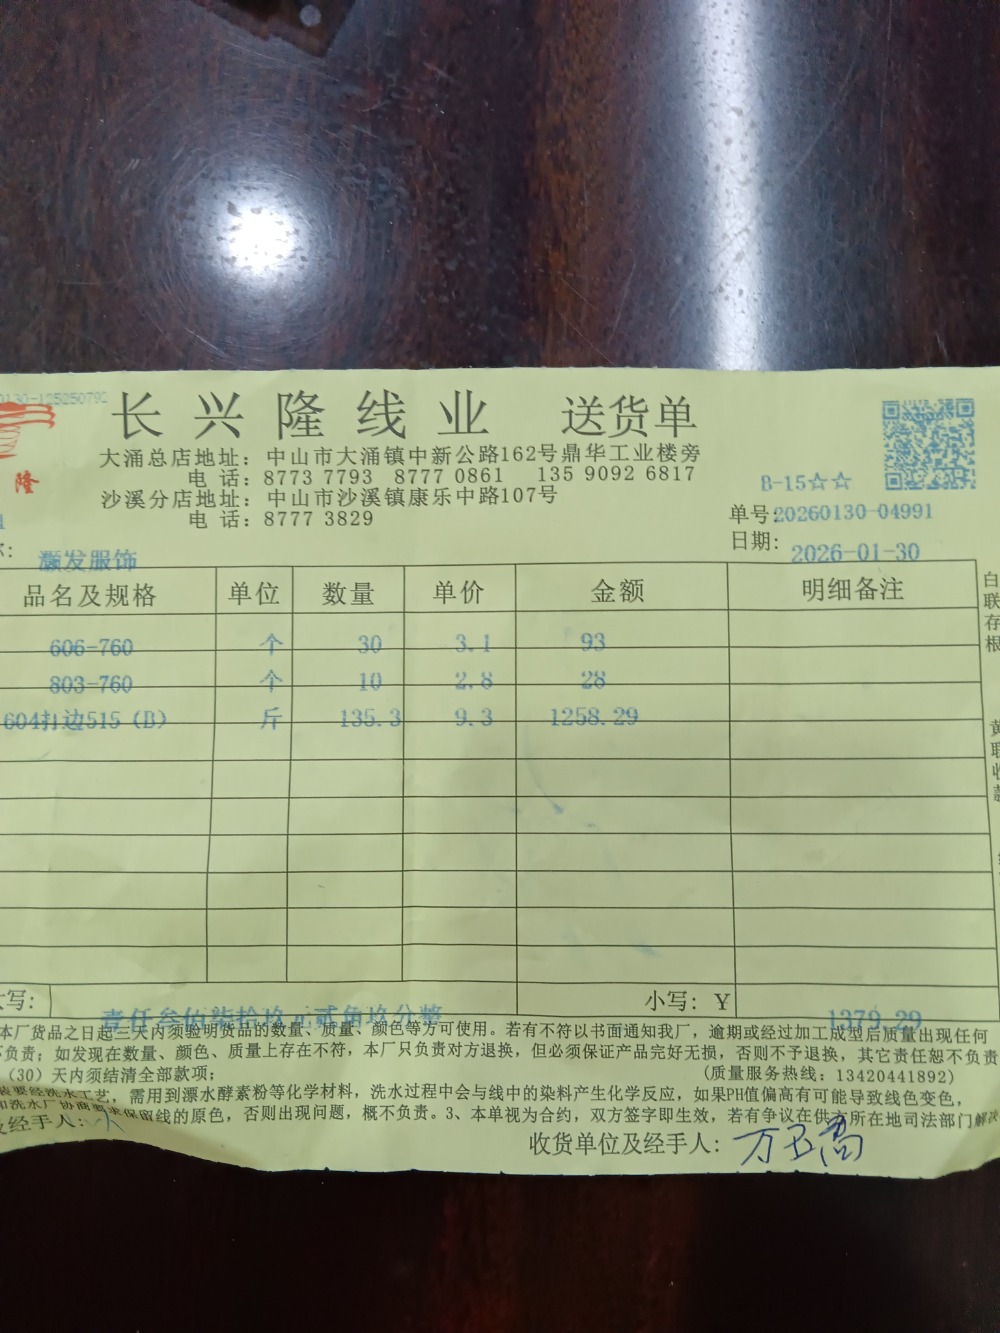 0130-125250792
长兴隆线业 送货单
隆
大涌总店地址：中山市大涌镇中新公路162号鼎华工业楼旁
电 话：8773 7793 8777 0861 135 9092 6817
沙溪分店地址：中山市沙溪镇康乐中路107号
电 话：8777 3829
B-15☆☆
单号:20260130-04991
日期: 2026-01-30
灏发服饰
品名及规格 单位 数量 单价 金额 明细备注
606-760 个 30 3.1 93
803-760 个 10 2.8 28
604打边515（B） 斤 135.3 9.3 1258.29
白联存根
大写: 壹仟叁佰柒拾玖元贰角玖分整 小写：￥ 1379.29
本厂货品之日起三天内须验明货品的数量、质量、颜色等方可使用。若有不符以书面通知我厂，逾期或经过加工成型后质量出现任何
不负责；如发现在数量、颜色、质量上存在不符，本厂只负责对方退换，但必须保证产品完好无损，否则不予退换，其它责任恕不负责
（30）天内须结清全部款项； (质量服务热线：13420441892)
装要经洗水工艺，需用到漂水酵素粉等化学材料，洗水过程中会与线中的染料产生化学反应，如果PH值偏高有可能导致线色变色，
和洗水厂协商要求保留线的原色，否则出现问题，概不负责。3、本单视为合约，双方签字即生效，若有争议在供方所在地司法部门解决
及经手人:
收货单位及经手人: